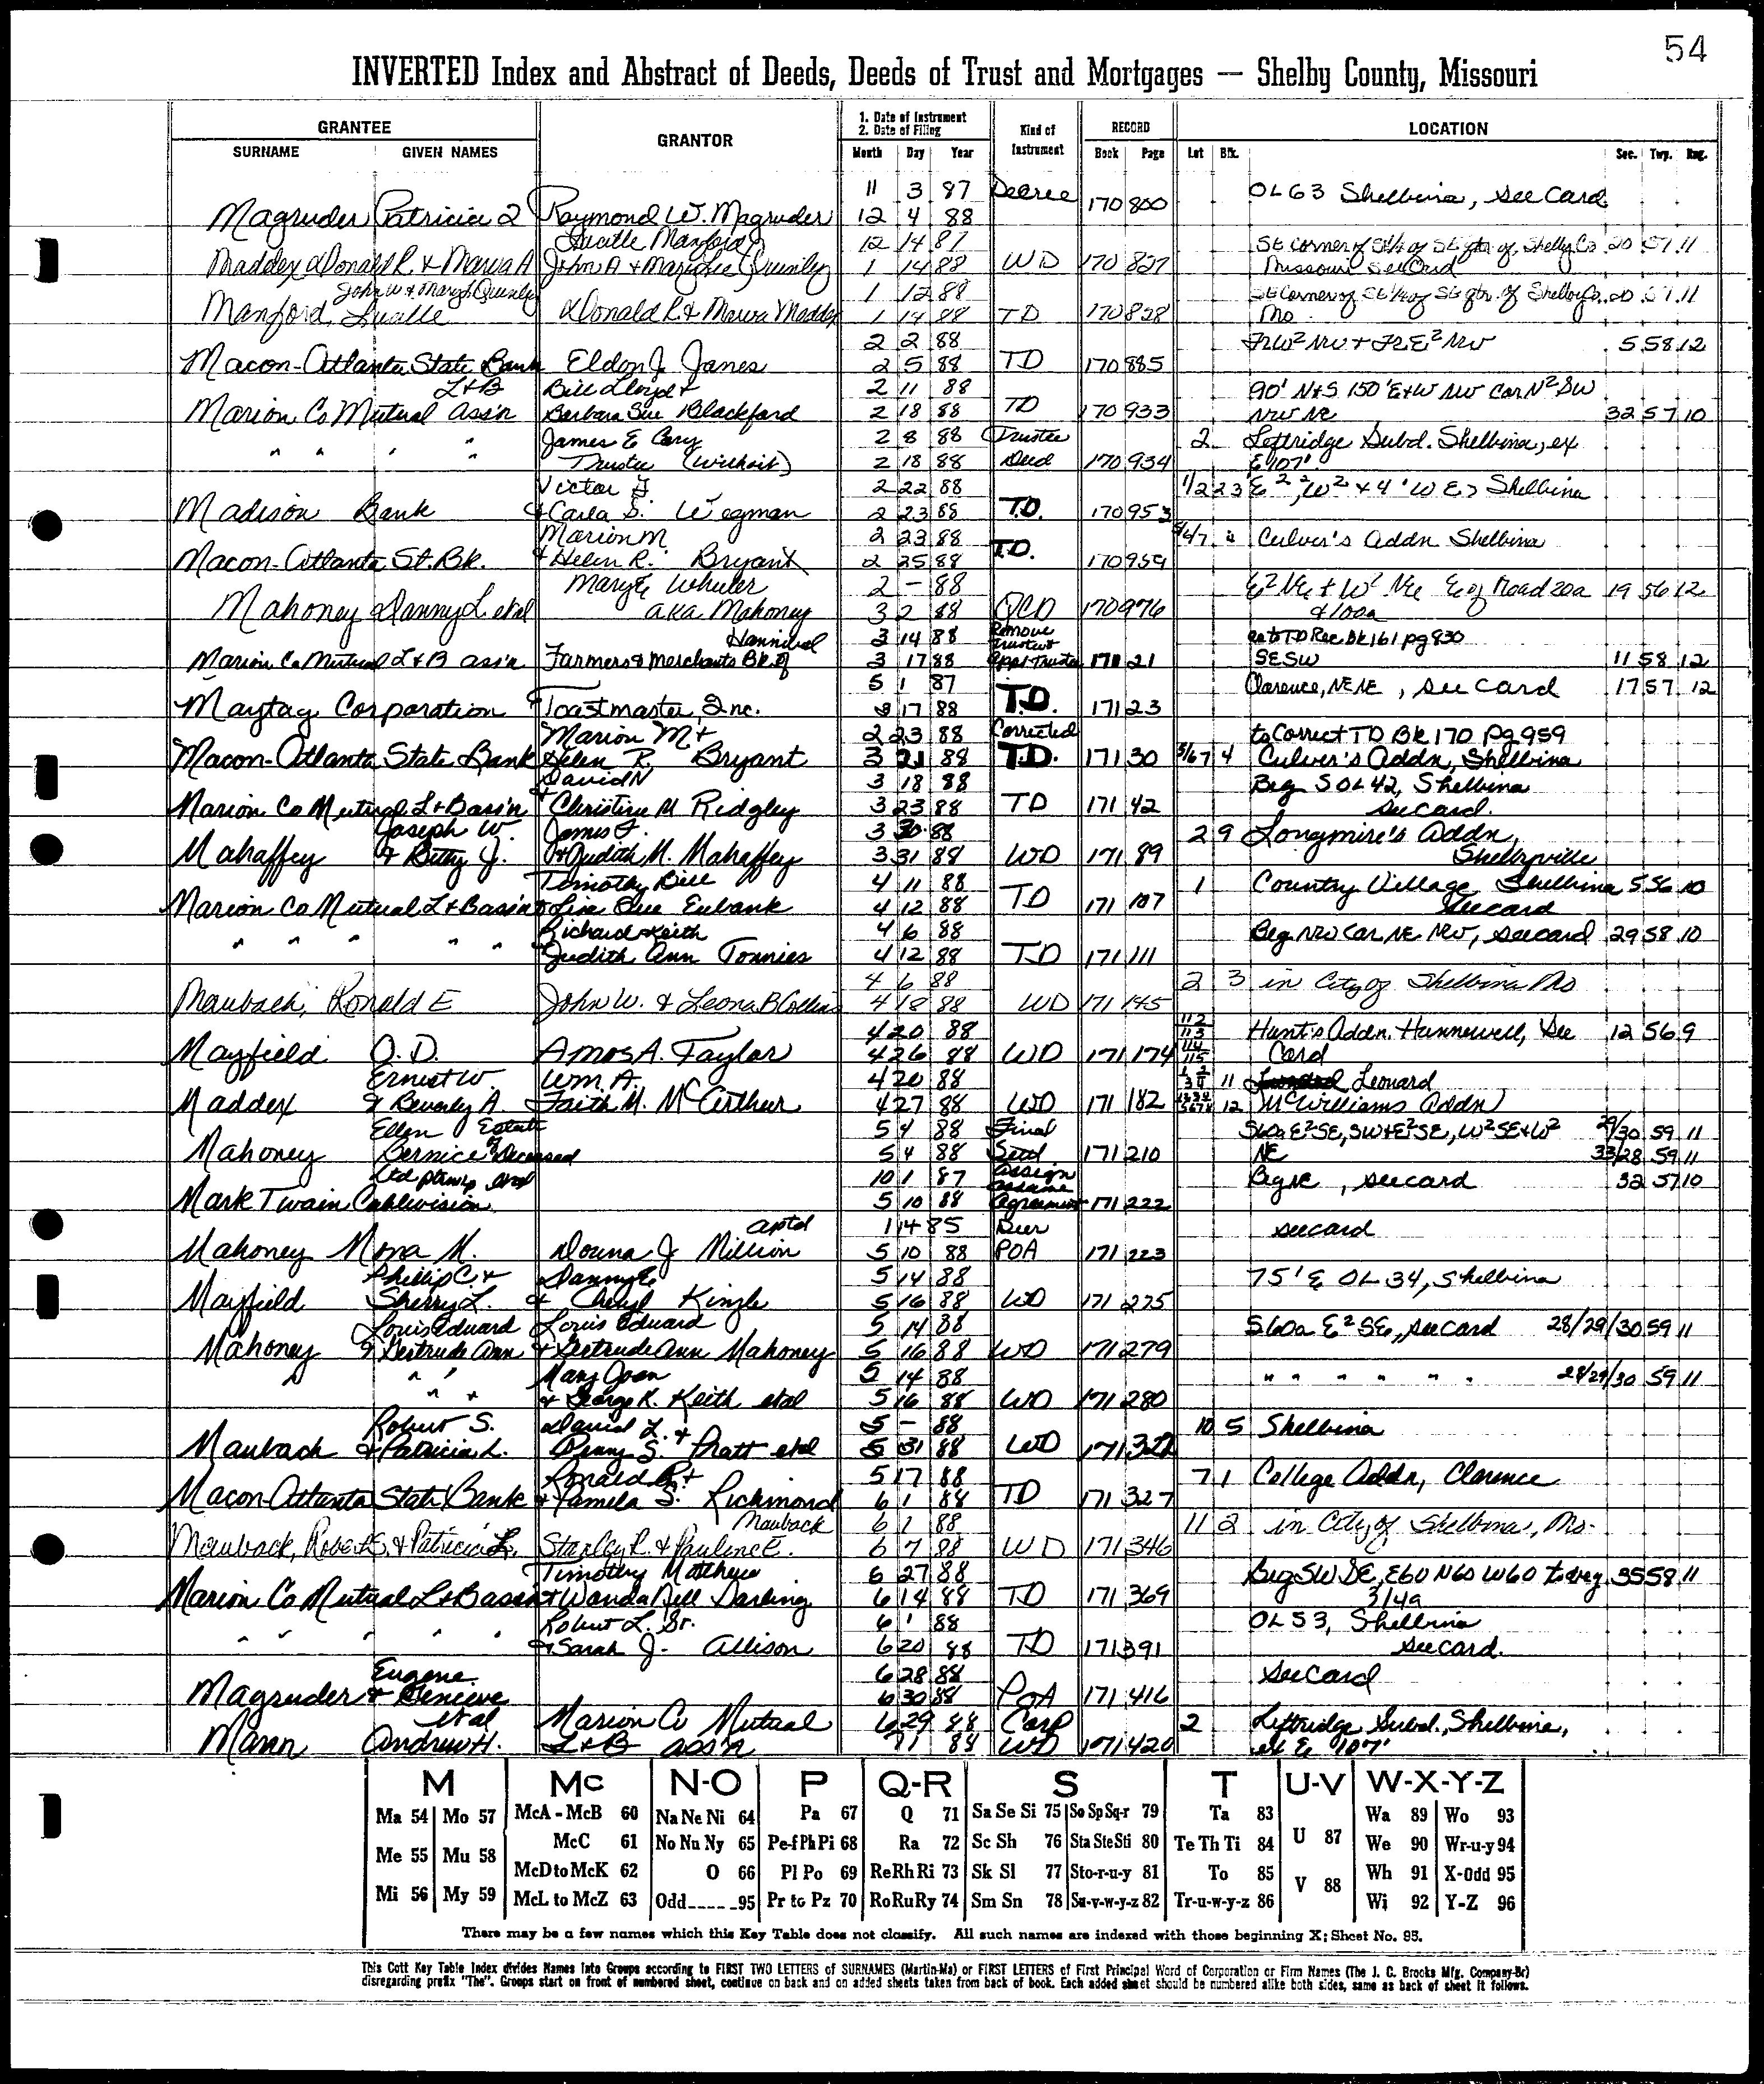 54
INVERTED Index and Abstract of Deeds, Deeds of Trust and Mortgages — Shelby County, Missouri
GRANTEE GRANTOR 1. Date of Instrument 2. Date of Filing Kind of Instrument RECORD LOCATION
SURNAME GIVEN NAMES Month Day Year Book Page Lot Blk. Sec. Twp. Rng.
11 3 87 Decree OL63 Shelbina, see Card
Magruder Patricia Raymond W. Magruder 12 4 88 170 800
Lucille Manford 12 14 87 SE Corner of SE¼ of SE qtr of, Shelby Co 20 57 11
Maddex Donald R. & Marva A John A + Mary Lee Quinley 1 14 88 WD 170 827 Missouri See Card
John W & Mary L Quinley 1 12 88 SE Corner of SE¼ of SE qtr. of Shelby Co. 20 57 11
Manford, Lucille Donald R. & Marva Maddex 1 14 88 TD 170 828 Mo.
2 2 88 FRW² NW + FRE² NW 5 58 12
Macon-Atlanta State Bank Eldon J. Janes 2 5 88 TD 170 885
L+B Bill Lloyd + 2 11 88 90' N+S 150' E+W NW Cor N² SW
Marion Co Mutual Ass'n Barbara Sue Blackford 2 18 88 TD 170 933 NW NE 32 57 10
" " " " James E Cary 2 8 88 Trustee 2 Leftridge Subd. Shelbina, ex
Trustee (Wilhoit) 2 18 88 Deed 170 934 E 107'
Victor J. 2 22 88 Shelbina
Madison Bank & Carla S. Wegman 2 23 88 T.D. 170 953
Marion M 2 23 88 5/6/7 4 Culver's Addn Shelbina
Macon-Atlanta St. Bk. + Helen R. Bryant 2 25 88 T.D. 170 959
Mary E Wheeler 2 - 88 E² NE + W² NE E of Road 20a 19 56 12
Mahoney Danny L etal aka Mahoney 3 2 88 QCD 170 976 & 100a
Hannibal 3 14 88 Remove Trustee + as to TD Rec Bk 161 pg 830
Marion Co Mutual L+B ass'n Farmers & Merchants Bk of 3 17 88 Appt Trustee 171 21 SESW 11 58 12
5 1 87 Clarence, NE NE, see Card 17 57 12
Maytag Corporation Toastmaster, Inc. 3 17 88 T.D. 171 23
Marion M + 2 23 88 Corrected to Correct TD Bk 170 pg 959
Macon-Atlanta State Bank Helen R. Bryant 3 21 88 T.D. 171 30 5/6/7 4 Culver's Addn, Shelbina
David N 3 18 88 Beg SOL 42, Shelbina
Marion Co Mutual L+B ass'n + Christine M Ridgley 3 23 88 TD 171 42 see card.
Joseph W. James F. 3 30 88 2 9 Longmire's Addn,
Mahaffey & Betty J. & Judith M. Mahaffey 3 31 88 WD 171 89 Shelbyville
Timothy Bill 4 11 88 1 Country Village, Shelbina 5 56 10
Marion Co Mutual L+B ass'n + Lisa Sue Eubank 4 12 88 TD 171 107 see card
" " " " " Richard Keith 4 6 88 Beg NW Cor NE NW, see card 29 58 10
Judith Ann Tonnies 4 12 88 TD 171 111
4 6 88 2 3 in City of Shelbina Mo
Maubach, Ronald E John W. & Leona B Collins 4 18 88 WD 171 145
4 20 88 112 113 Hunt's Addn. Hunnewell, See 12 56 9
Mayfield O. D. Amos A. Taylor 4 26 88 WD 171 174 114 115 Card
Ernest W. Wm. A. 4 20 88 1 2 3 4 11 Leonard
Maddex & Beverly A Faith M. McArthur 4 27 88 WD 171 182 12 McWilliams Addn
Ellen Estate 5 4 88 Final S60a E²SE, SW+E²SE, W²SE+W² 29/30 59 11
Mahoney Bernice of Deceased 5 4 88 Settl 171 210 NE 33/28 59 11
Ltd ptnrshp etal 10 1 87 Assign Assume Beg NE, see card 32 57 10
Mark Twain Cablevision 5 10 88 Agreement 171 222
aptd 1 14 85 Dur see card
Mahoney Mona M. Donna J Million 5 10 88 POA 171 223
Phillip C. + Danny E 5 14 88 75' E OL 34, Shelbina
Mayfield Sherry L. & Cheryl Kinzle 5 16 88 WD 171 275
Louis Eduard Louis Eduard 5 14 88 S60a E² SE, see card 28/29/30 59 11
Mahoney & Gertrude Ann + Gertrude Ann Mahoney 5 16 88 WD 171 279
" " " Mary Joan 5 14 88 " " " " " " 28/29/30 59 11
" " & George K. Keith etal 5 16 88 WD 171 280
Robert S. David L. + 5 - 88 10 5 Shelbina
Maubach & Patricia L. Penny S. Pratt etal 5 31 88 WD 171 322
Ronald R + 5 17 88 7 1 College Addn, Clarence
Macon-Atlanta State Bank + Pamela S. Richmond 6 1 88 TD 171 327
Mauback 6 1 88 11 2 in City of Shelbina, Mo.
Mauback, Robert S. & Patricia L. Stanley R. & Pauline E. 6 7 88 WD 171 346
Timothy Matthew 6 27 88 Beg SW SE, E60 N60 W60 to beg 35 58 11
Marion Co Mutual L+B ass'n + Wanda Nell Darling 6 14 88 TD 171 369 3/4a
" " " " Robert L. Sr. 6 1 88 OL 53, Shelbina
& Sarah J. Allison 6 20 88 TD 171 391 see card.
Eugene 6 28 88 see Card
Magruder & Genieve 6 30 88 POA 171 416
etal Marion Co Mutual 6 29 88 Corp 2 Leftridge Subd., Shelbina,
Mann Andrew H. L+B ass'n 7 1 88 WD 171 420 ex E 107'
M Mc N-O P Q-R S T U-V W-X-Y-Z
Ma 54 Mo 57 McA - McB 60 Na Ne Ni 64 Pa 67 Q 71 Sa Se Si 75 So Sp Sq-r 79 Ta 83 U 87 Wa 89 Wo 93
Me 55 Mu 58 McC 61 No Nu Ny 65 Pe-f Ph Pi 68 Ra 72 Sc Sh 76 Sta Ste Sti 80 Te Th Ti 84 We 90 Wr-u-y 94
McD to McK 62 O 66 Pl Po 69 Re Rh Ri 73 Sk Sl 77 Sto-r-u-y 81 To 85 V 88 Wh 91 X-Odd 95
Mi 56 My 59 McL to McZ 63 Odd 95 Pr to Pz 70 Ro Ru Ry 74 Sm Sn 78 Su-v-w-y-z 82 Tr-u-w-y-z 86 Wi 92 Y-Z 96
There may be a few names which this Key Table does not classify. All such names are indexed with those beginning X; Sheet No. 95.
This Cott Key Table Index divides Names into Groups according to FIRST TWO LETTERS of SURNAMES (Martin-Ma) or FIRST LETTERS of First Principal Word of Corporation or Firm Names (The J. C. Brooks Mfg. Company-Br)
disregarding prefix "The". Groups start on front of numbered sheet, continue on back and on added sheets taken from back of book. Each added sheet should be numbered alike both sides, same as back of sheet it follows.